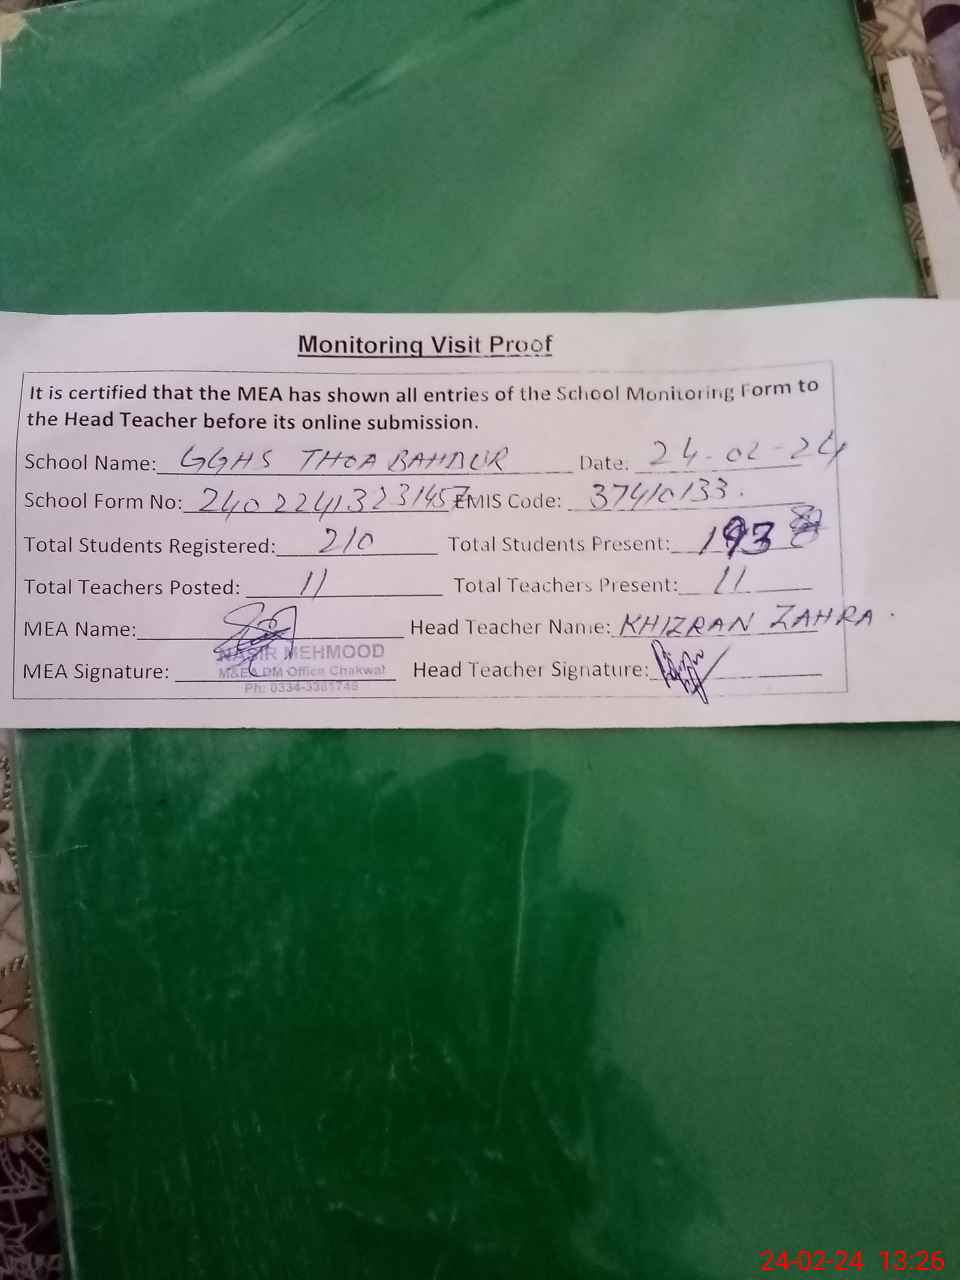 Monitoring Visit Proof
It is certified that the MEA has shown all entries of the School Monitoring Form to
the Head Teacher before its online submission.
School Name: GGHS THOA BAHADUR Date: 24-02-24
School Form No: 24022413231457 EMIS Code: 37410133.
Total Students Registered: 210 Total Students Present: 193
Total Teachers Posted: 11 Total Teachers Present: 11
MEA Name: Head Teacher Name: KHIZRAN ZAHRA.
NASIR MEHMOOD
MEA Signature: M&EA DM Office Chakwal Head Teacher Signature:
Ph: 0334-
24-02-24 13:26